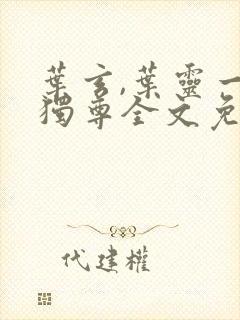 葉玄,葉靈一
獨尊全文免
代建權